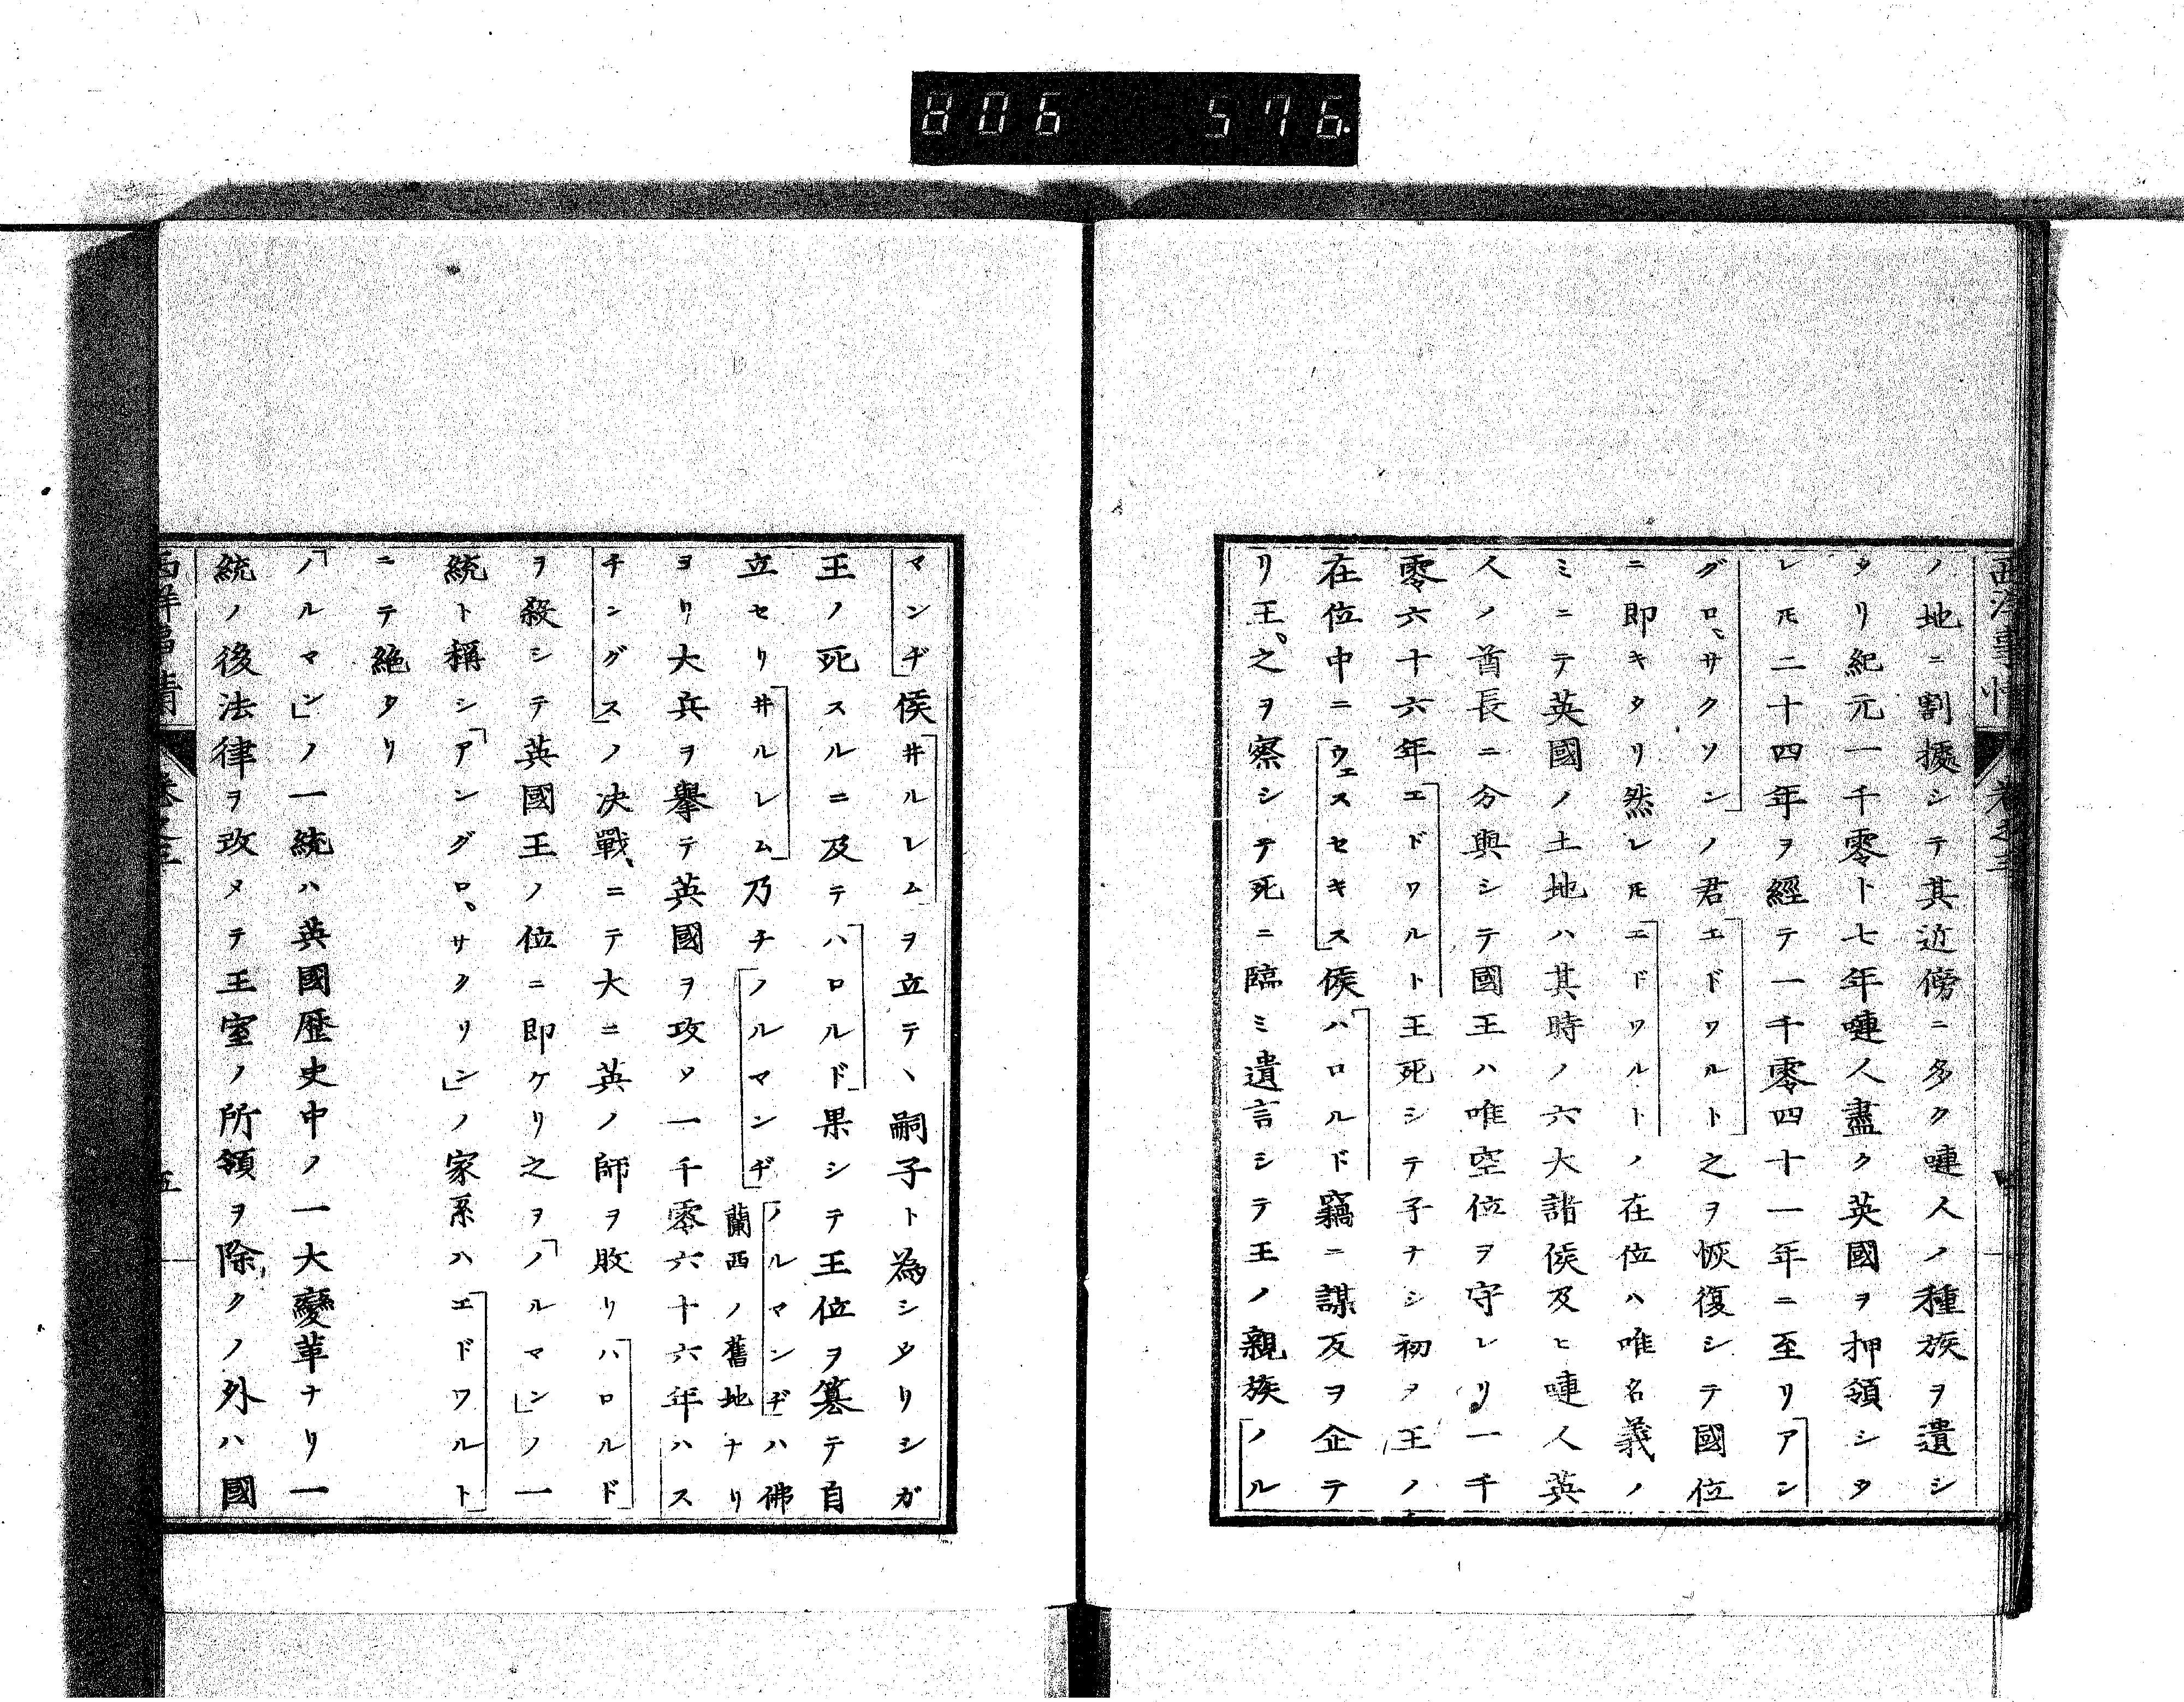 806 576.
西洋事情 卷之三 四
ノ地ニ割據シテ其近傍ニ多ク嗹人ノ種族ヲ遺シ
タリ紀元一千零十七年嗹人盡ク英國ヲ押領シタ
レ𪜈二十四年ヲ經テ一千零四十一年ニ至リアン
グロ、サクソンノ君エドワルト之ヲ恢復シテ國位
ニ即キタリ然レ𪜈エドワルトノ在位ハ唯名義ノ
ミニテ英國ノ土地ハ其時ノ六大諸侯及ヒ嗹人英
人ノ酋長ニ分與シテ國王ハ唯空位ヲ守レリ一千
零六十六年エドワルト王死シテ子ナシ初メ王ノ
在位中ニウエスセキス侯ハロルド竊ニ謀反ヲ企テ
リ王、之ヲ察シテ死ニ臨ミ遺言シテ王ノ親族ノル
マンヂ侯井ルレムヲ立テヽ嗣子ト為シタリシガ
王ノ死スルニ及テハロルド果シテ王位ヲ簒テ自
立セリ井ルレム乃チノルマンヂ ノルマンヂハ佛蘭西ノ舊地ナリ
ヨリ大兵ヲ擧テ英國ヲ攻メ一千零六十六年ハス
チングスノ决戰、ニテ大ニ英ノ師ヲ敗リハロルド
ヲ殺シテ英國王ノ位ニ即ケリ之ヲ「ノルマン」ノ一
統ト稱シ「アングロ、サクリン」ノ家系ハエドワルト
ニテ絶タリ
「ノルマン」ノ一統ハ英國歴史中ノ一大變革ナリ一
統ノ後法律ヲ改メテ王室ノ所領ヲ除クノ外ハ國
西洋事情 卷之三 五